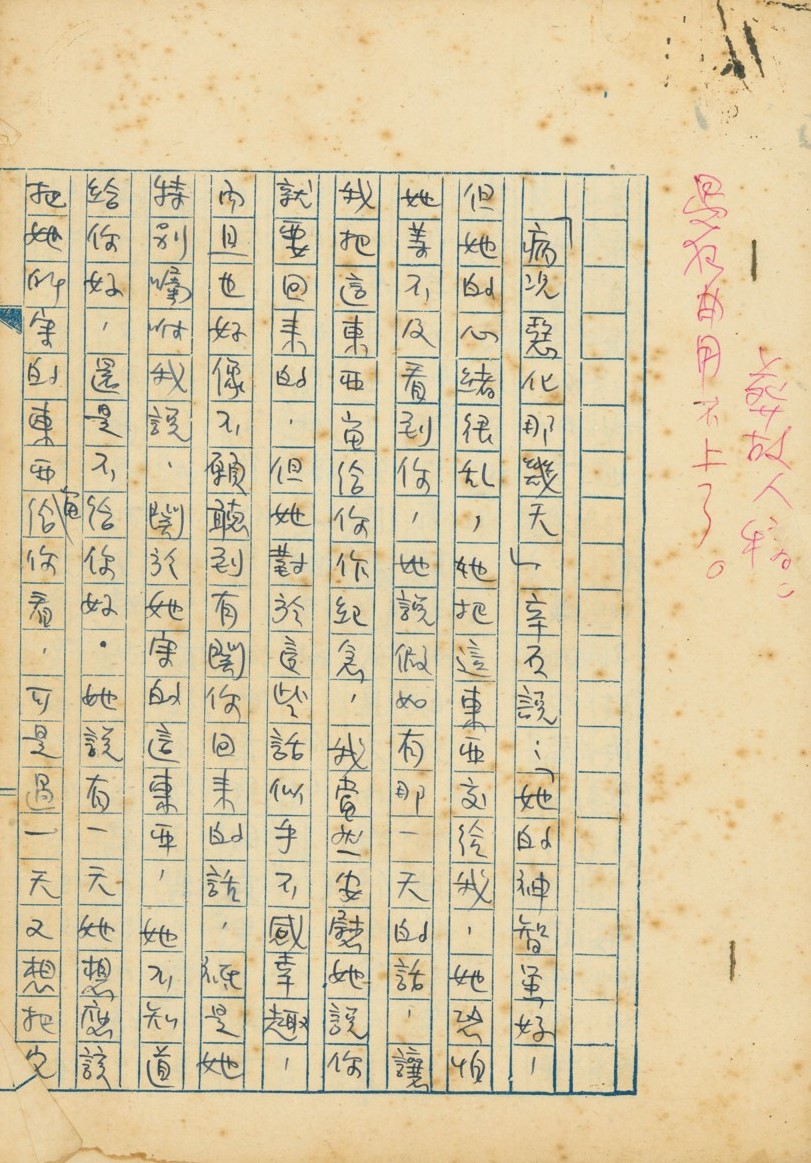 葬故人稿。
狂曲用不上了。
「病況惡化那幾天」辛說：「她的神智虽好，
但她的心緒很乱，她把這東西交給我，她恐怕
她等不及看到你，她說假如有那一天的話，讓
我把這東西寄給你作紀念，我當然安慰她說你
就要回来的，但她對於這些話似乎不感幸趣，
而且也好像不願聽到有關你回来的話，祇是她
特別囑咐我說，關於她寫的這東西，她不知道
給你好，還是不給你好。她說有一天她想應該
把她所寫的東西寄給你看，可是過一天又想把它